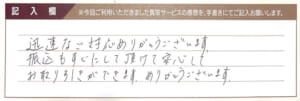 記入欄
※今回ご利用いただきました買取サービスの感想を、手書きにてご記入お願いします。
迅速なご対応ありがとうございます。
振込もすぐにして頂けて安心して
お取り引きができます。ありがとうございます。